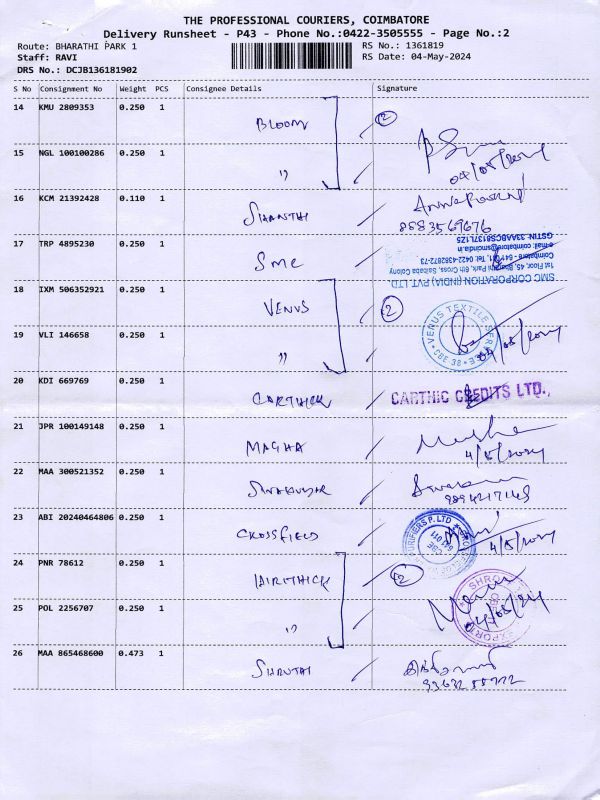 THE PROFESSIONAL COURIERS, COIMBATORE
Delivery Runsheet - P43 - Phone No.:0422-3505555 - Page No.:2
Route: BHARATHI PARK 1 RS No.: 1361819
Staff: RAVI RS Date: 04-May-2024
DRS No.: DCJB136181902
S No Consignment No Weight PCS Consignee Details Signature
14 KMU 2809353 0.250 1 BLOOM 2
15 NGL 100100286 0.250 1 " 04/05/2024
16 KCM 21392428 0.110 1 SHANTHI
8883569676
17 TRP 4895230 0.250 1 SMC
GSTIN: 33AABCS8137L1Z5
e:mail: coimbatore@smcindia.in
Coimbatore - 641 011, Tel: 0422-4382872-73
1st Floor, 45, Bharathi Park, 6th Cross, Saibaba Colony
SMC CORPORATION (INDIA) PVT.LTD
18 IXM 506352921 0.250 1 VENUS 2
VENUS TEXTILE SERVICE
CBE 38
19 VLI 146658 0.250 1 " 04/05/2024
20 KDI 669769 0.250 1 CARTHICK CARTHIC CREDITS LTD.,
21 JPR 100149148 0.250 1 MAGHA
4/5/2024
22 MAA 300521352 0.250 1 SIVAKUMAR
9894217148
23 ABI 20240464806 0.250 1 CROSSFIELD 4/5/2024
PURIFIERS P.LTD
CBE
641 011
24 PNR 78612 0.250 1 HAIRTHICK 2
25 POL 2256707 0.250 1 " 04/05/24
SHRO
EXPORT
26 MAA 865468600 0.473 1 SHRUTHI